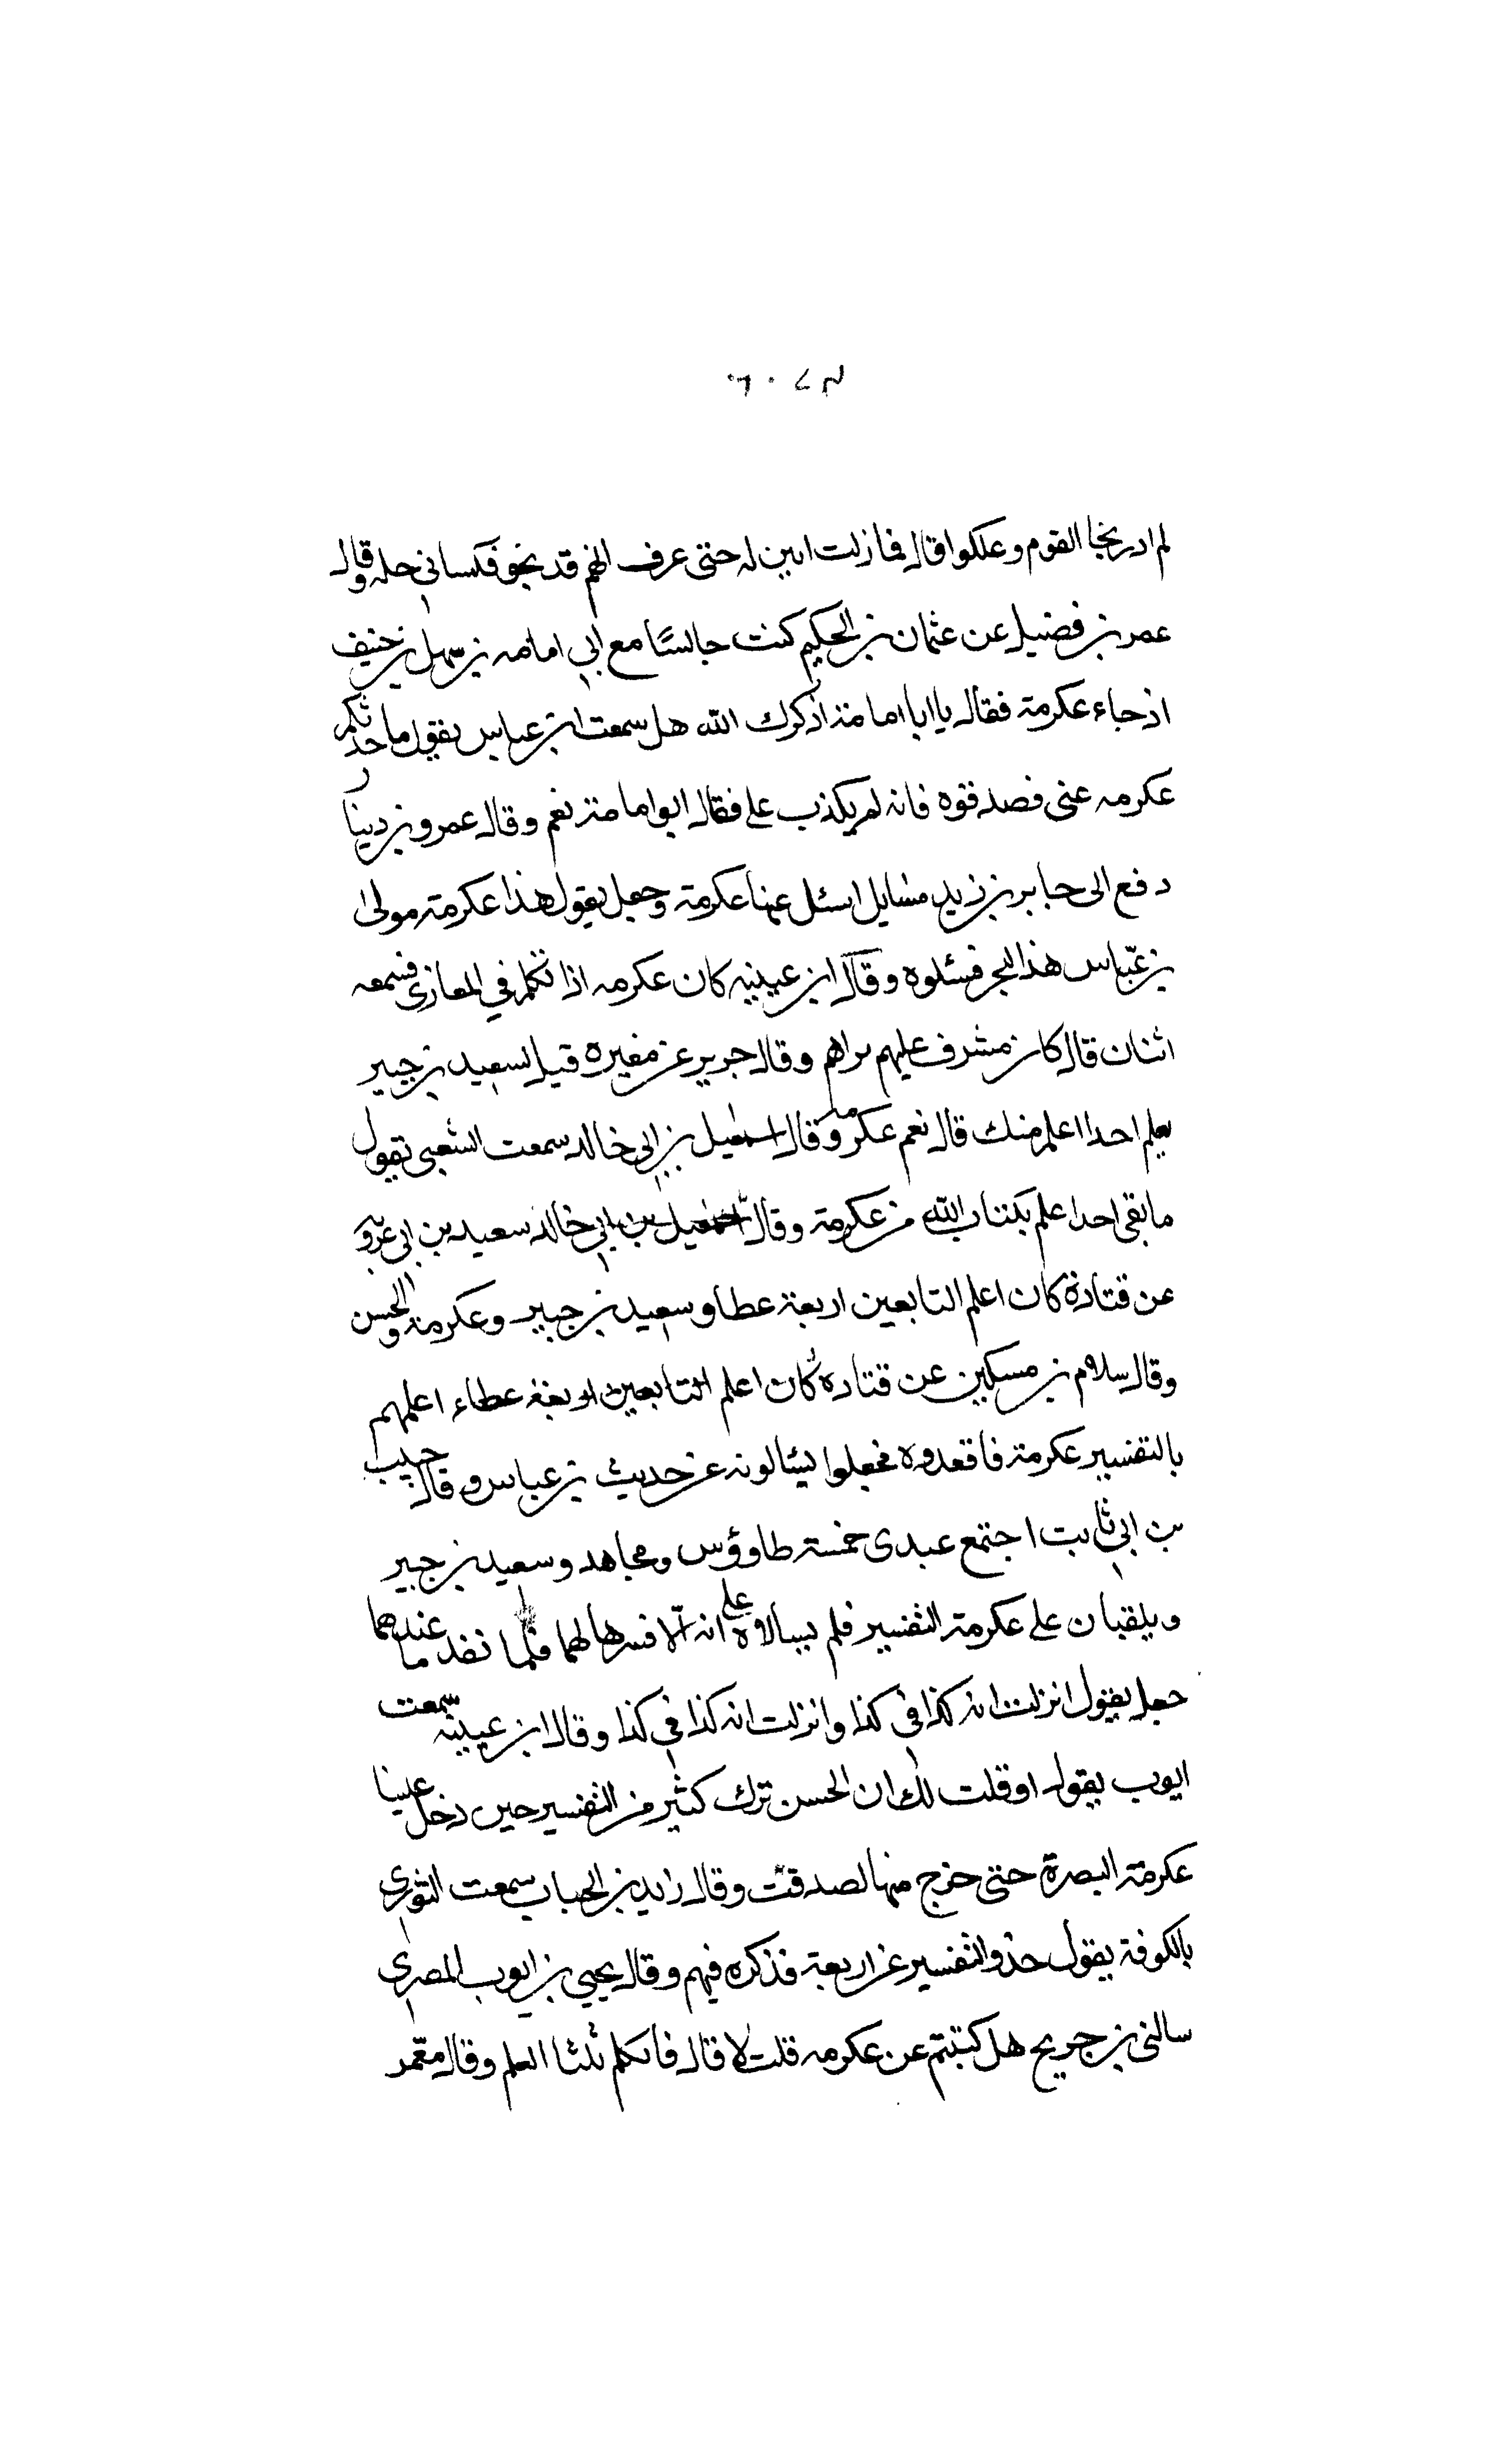 لم ادر نجا القوم وهلكوا قال فما زلت ابين له حتى عرف انهم قد نجو فكساني حله وقال
عمر بن فضيل عن عثمان بن الحكيم كنت جالسًا مع ابي امامه بن سهل بن حنيف
اذ جاء عكرمة فقال يا ابا امامة اذكرك الله هل سمعت ابن عباس يقول ما حدثكم
عكرمه عنى فصدقوه فانه لم يكذب على فقال ابو امامة نعم وقال عمرو بن دينار
دفع الى جابر بن زيد مسايل اسئل عنها عكرمة وجعل يقول هذا عكرمة مولى
بن عباس هذا البحر فسئلوه وقال ابن عيينه كان عكرمه اذا تكلم في المغازى فسمعه
اثنان قال كان مشرف عليهم يراهم وقال جرير عن مغيره قيل لسعيد بن جبير
يعلم احدا اعلم منك قال نعم عكرمه وقال اسمعيل بن ابى خالد سمعت الشعبى يقول
ما بقى احدا علم بكتاب الله من عكرمة وقال سعيد بن ابى عروبه
عن قتادة كان اعلم التابعين اربعة عطا وسعيد بن جبير وعكرمة والحسن
وقال سلام بن مسكين عن قتاده كان اعلم التابعين اربعة عطاء اعلمهم
بالتفسير عكرمة فاقعدوه فجعلوا يسئالونه عن حديث بن عباس وقال حبيب
بن ابي ثابت اجتمع عندى خمسة طاوؤس ومجاهد وسعيد بن جبير
ويلقيان على عكرمة التفسير فلم يسالاه على انه الا فسرها لهما فلما نفد ما عندهما
جعل يقول انزلت انه كذا في كذا وانزلت انه كذا في كذا وقال ابن عيينه سمعت
ايوب يقول او قلت لك ان الحسن ترك كثير من التفسير حين دخل علينا
عكرمة البصرة حتى خرج منها لصدقت وقال زايد بن الحباب سمعت الثورى
بالكوفة يقول خذو التفسير عن اربعة فذكره فيهم وقال يحيى بن ايوب المصرى
سالنى بن جريح هل كتبتم عن عكرمه قلت لا قال فاتكلم ثلثا العلم وقال معمر